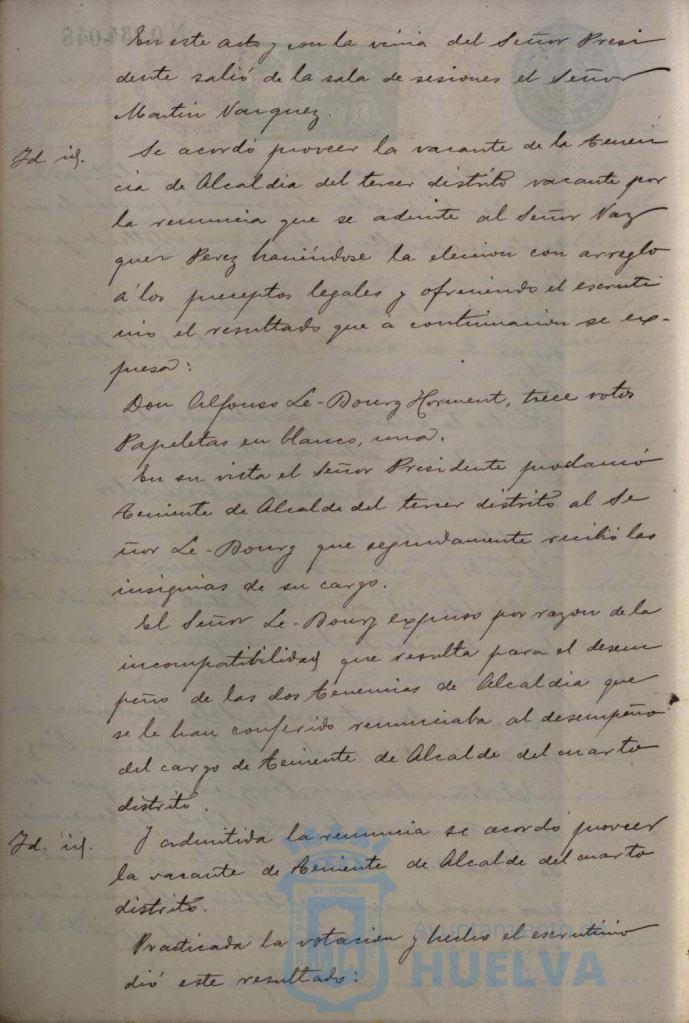 En este acto y con la venia del Señor Presi
dente salió de la sala de sesiones el Señor
Martin Vazquez.
Id. id. Se acordó proveer la vacante de la tenen
cia de Alcaldia del tercer distrito vacante por
la renuncia que se admite al Señor Vaz
quez Perez haciéndose la eleccion con arreglo
á los preceptos legales y ofreciendo el escruti
nio el resultado que a continuacion se ex-
presa:
Don Alfonso Le-Bourg Horment, trece votos
Papeletas en blanco, una.
En su vista el Señor Presidente proclamó
teniente de Alcalde del tercer distrito al Se
ñor Le-Bourg que seguidamente recibió las
insignias de su cargo.
El Señor Le-Bourg expuso por razon de la
incompatibilidad que resulta para el desem
peño de las dos tenencias de Alcaldia que
se le han conferido renunciaba al desempeño
del cargo de teniente de Alcalde del cuarto
distrito.
Id. id. Y admitida la renuncia se acordó proveer
la vacante de teniente de Alcalde del cuarto
distrito.
Practicada la votacion y hecho el escrutinio
dió este resultado:
Ayuntamiento de
HUELVA